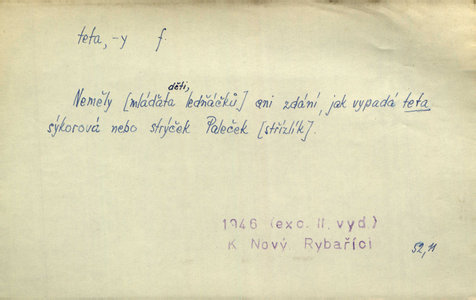 teta, -y f.
děti,
Neměly [mláďata ledňáčků] ani zdání, jak vypadá teta
sýkorová nebo strýček Paleček [střízlík].
1946 (exc. II. vyd.)
K. Nový, Rybaříci
52, 11